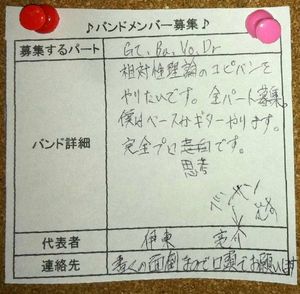 ♪バンドメンバー募集♪
募集するパート
Gt, Ba, Vo, Dr
バンド詳細
相対性理論のコピバンを
やりたいです。全パート募集。
僕はベースかギターやります。
完全プロ志向です。
思考
代表者
伊東
連絡先
書くの面倒なので口頭でお願いします